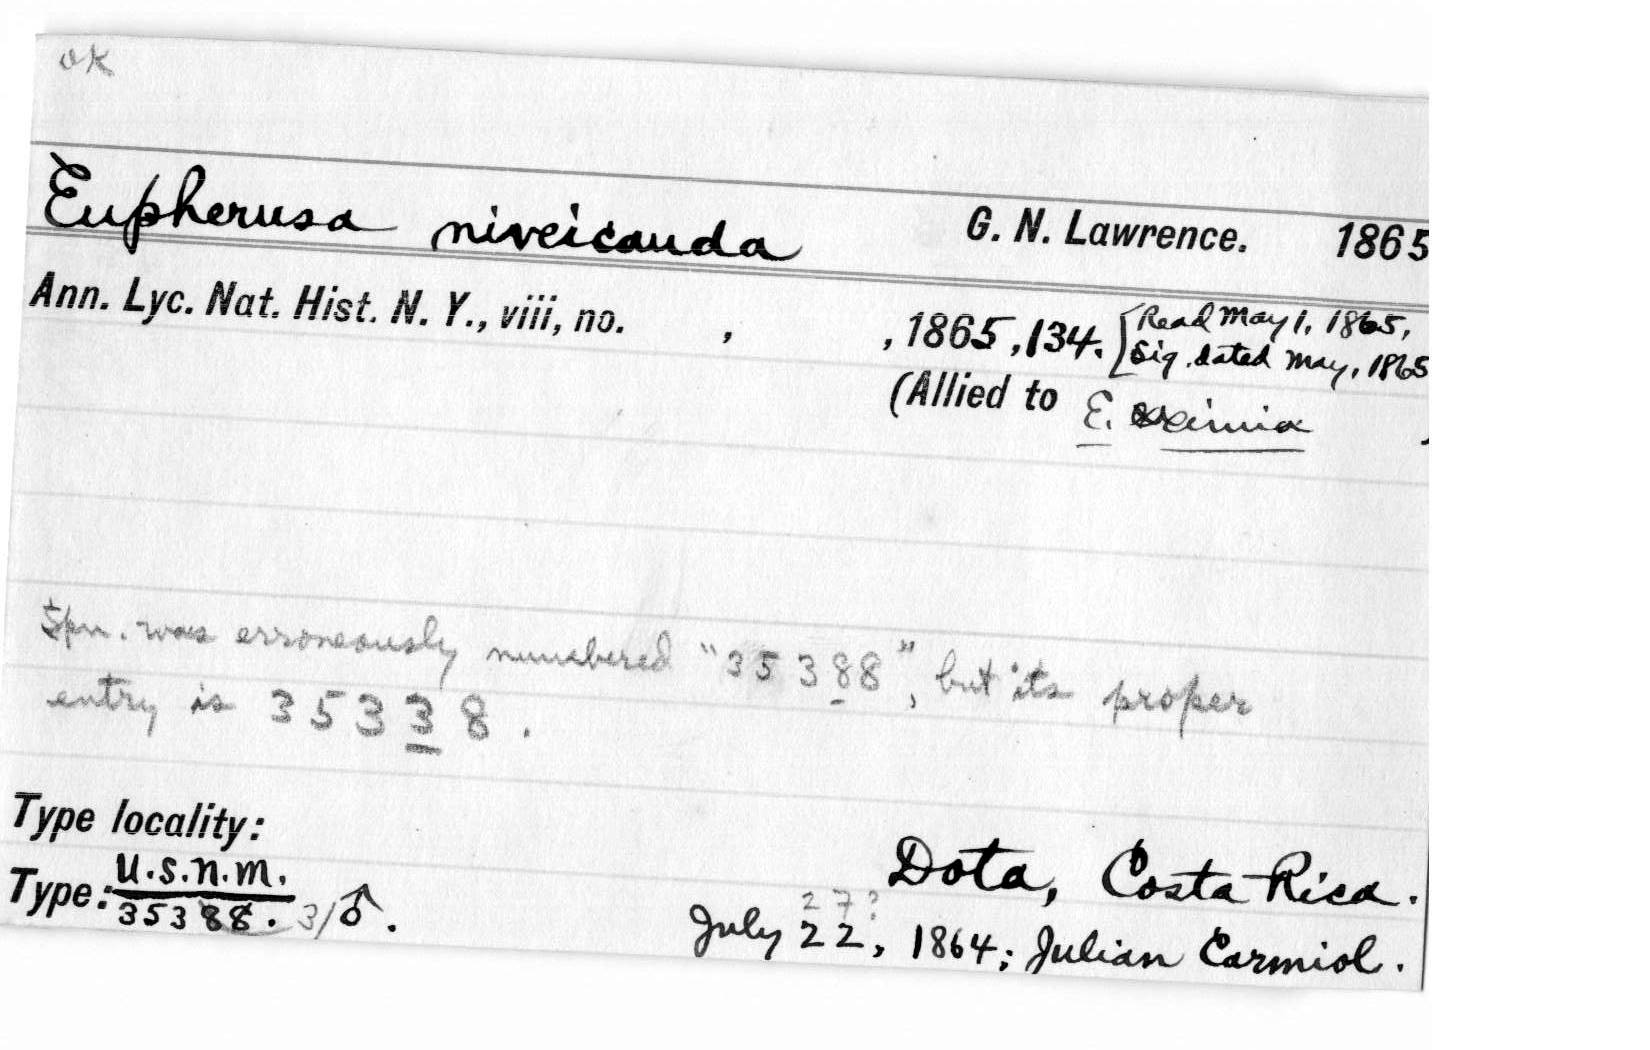 ok
Eupherusa niveicauda G. N. Lawrence. 1865
Ann. Lyc. Nat. Hist. N. Y., viii, no. , , 1865, 134. [Read May 1, 1865,
Sig. dated May, 1865
(Allied to E. eximia )
Spn. was erroneously numbered "35388", but its proper
entry is 35338.
Type locality:
Dota, Costa Rica.
Type: U.S.N.M.
35388. 3/ ♂.
27?
July 22, 1864; Julian Carmiol.